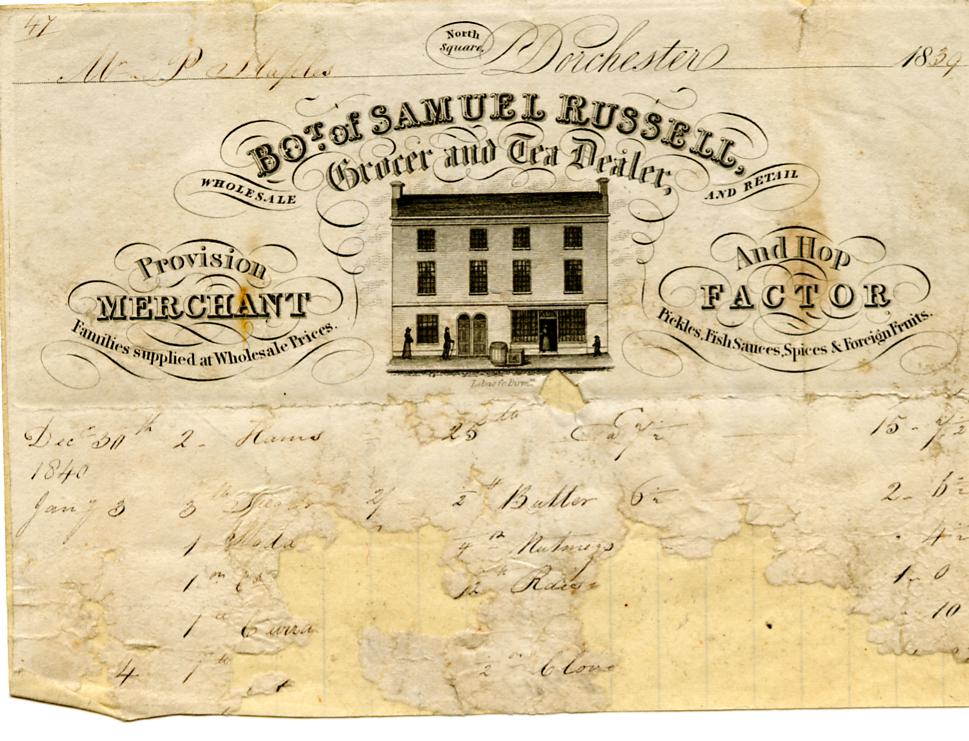 47
North
Square,
Dorchester 1839
Mr P Staples
BOT. of SAMUEL RUSSELL,
Grocer and Tea Dealer,
WHOLESALE AND RETAIL
Provision
MERCHANT
Families supplied at Wholesale Prices.
And Hop
FACTOR
Pickles, Fish Sauces, Spices & Foreign Fruits.
Decr 30th 2 - Hams 25 lb a 7½ 15 - 7½
1840
Jany 3 3 lb 2/ 2 lb Butter 6½ 2 - 6½
1 Soda 4 Nutmegs 4½
1 oz 12 lb 1 - 0
1 10
4 1 lb 2 oz Clove